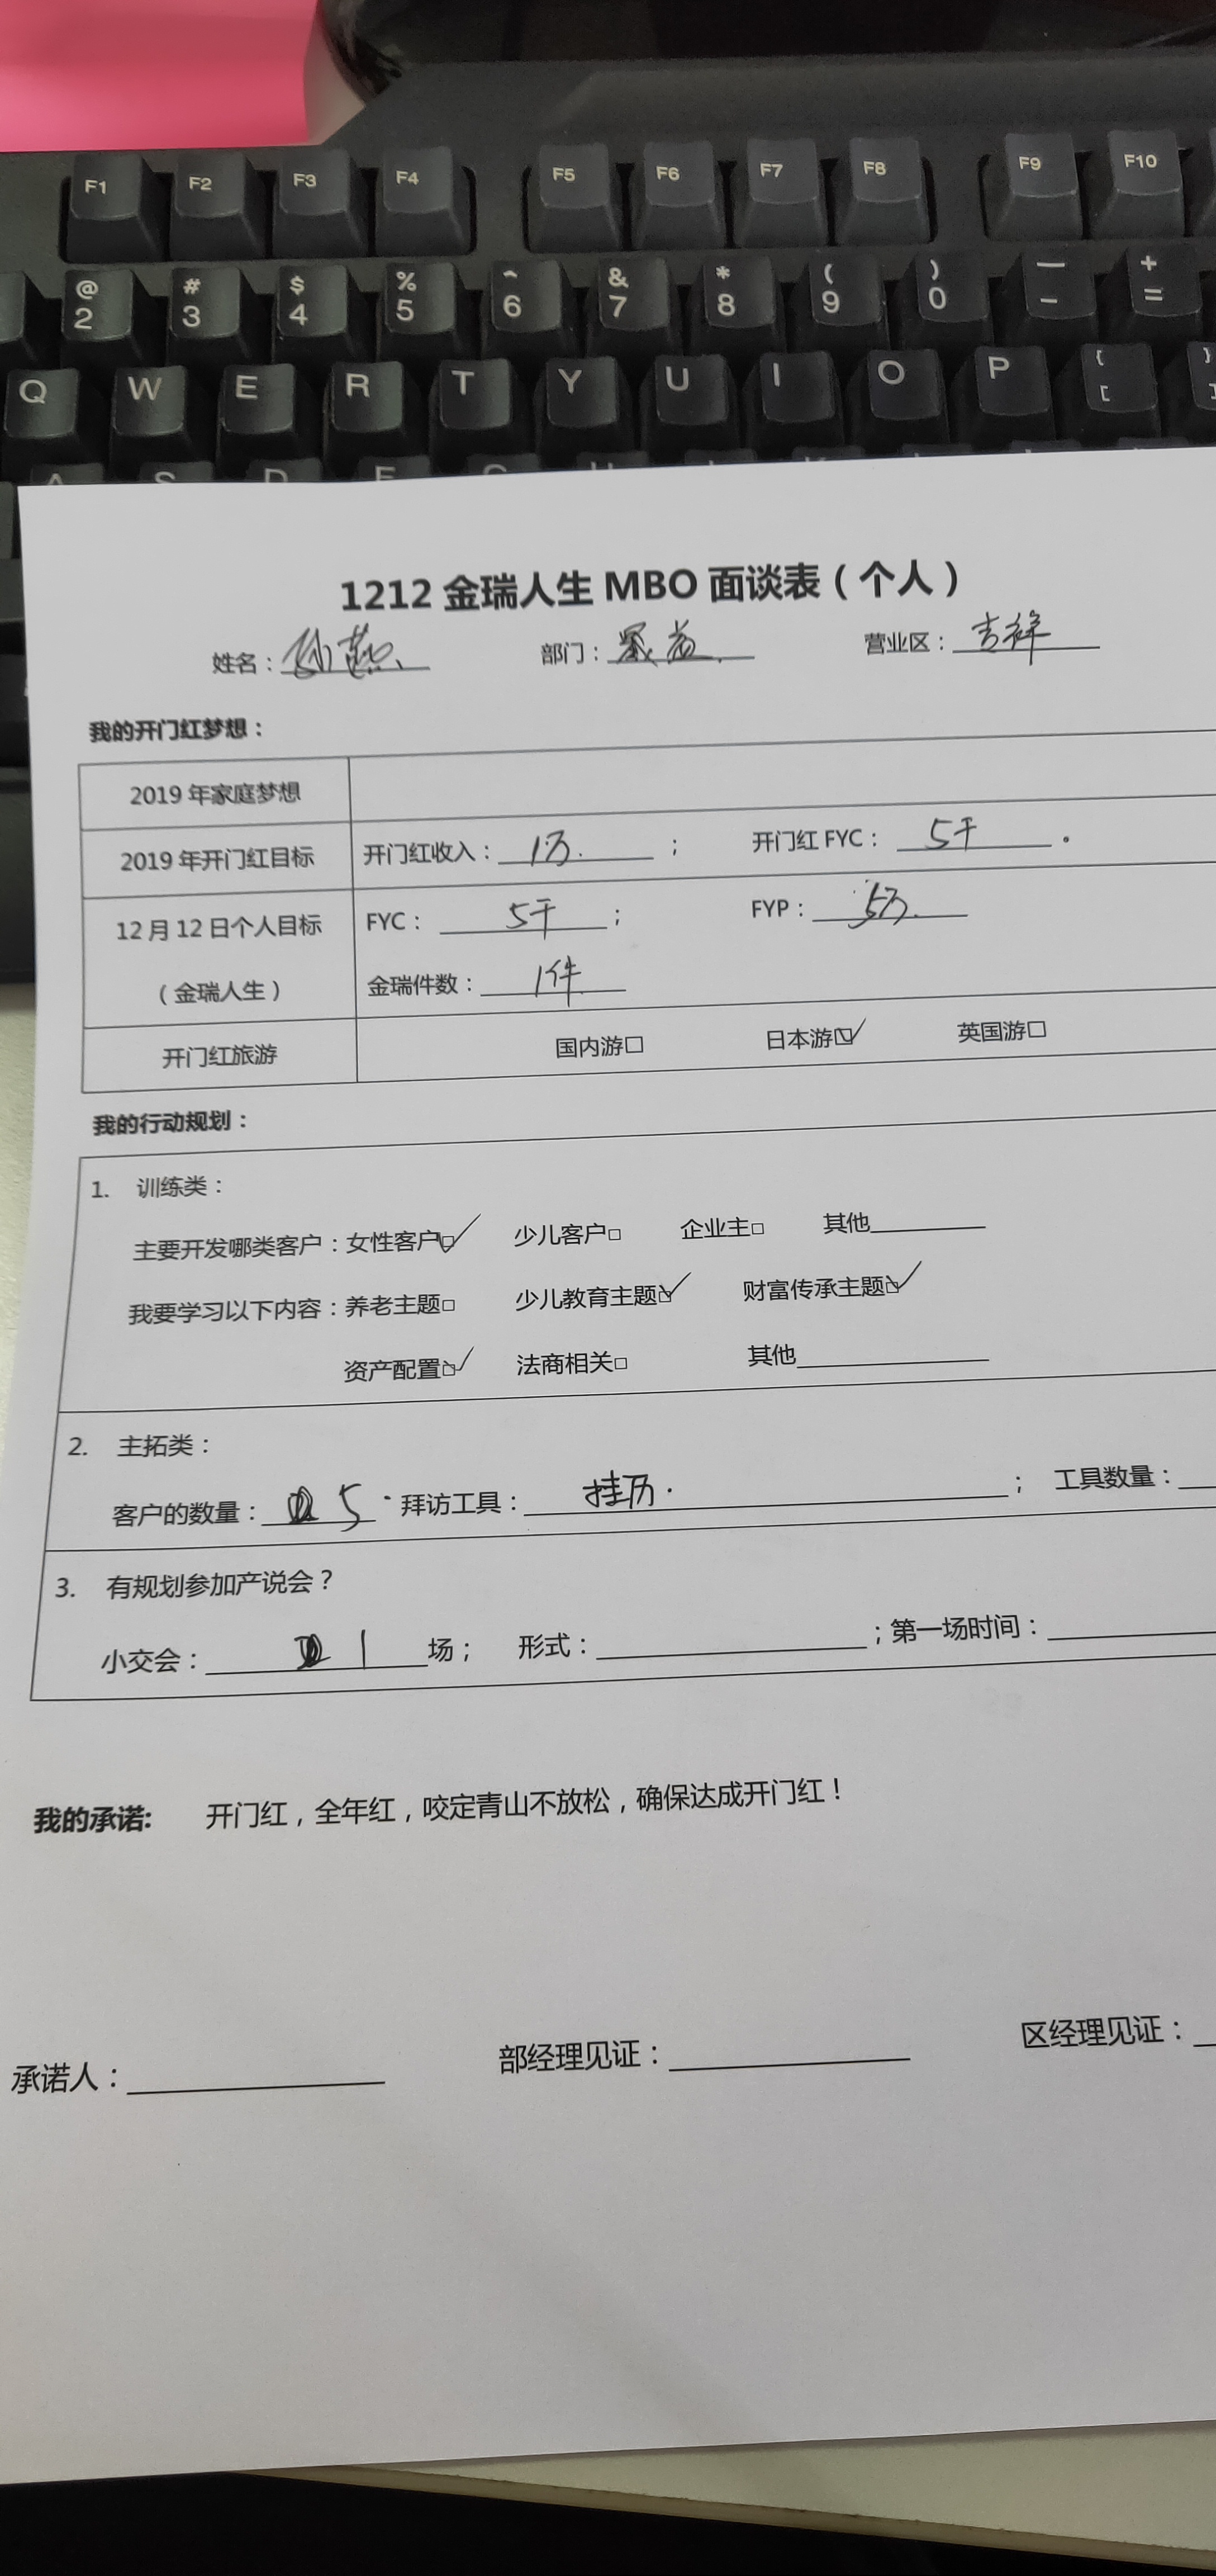 F1 F2 F3 F4 F5 F6 F7 F8 F9 F10
@ # $ % ^ & * ( ) — +
2 3 4 5 6 7 8 9 0 - =
Q W E R T Y U I O P { [ } ]
A S D F G H
1212 金瑞人生 MBO 面谈表（个人）
姓名：孙燕 部门： 营业区：吉祥
我的开门红梦想：
2019 年家庭梦想
2019 年开门红目标 开门红收入：1万. ； 开门红 FYC：5千 。
12 月 12 日个人目标 FYC：5千 ； FYP：5万.
（金瑞人生） 金瑞件数：1件
开门红旅游 国内游□ 日本游☑ 英国游□
我的行动规划：
1. 训练类：
主要开发哪类客户：女性客户☑ 少儿客户□ 企业主□ 其他
我要学习以下内容：养老主题□ 少儿教育主题☑ 财富传承主题☑
资产配置☑ 法商相关□ 其他
2. 主拓类：
客户的数量：5 拜访工具：挂历. ； 工具数量：
3. 有规划参加产说会？
小交会：1 场； 形式： ；第一场时间：
我的承诺: 开门红，全年红，咬定青山不放松，确保达成开门红！
承诺人： 部经理见证： 区经理见证：